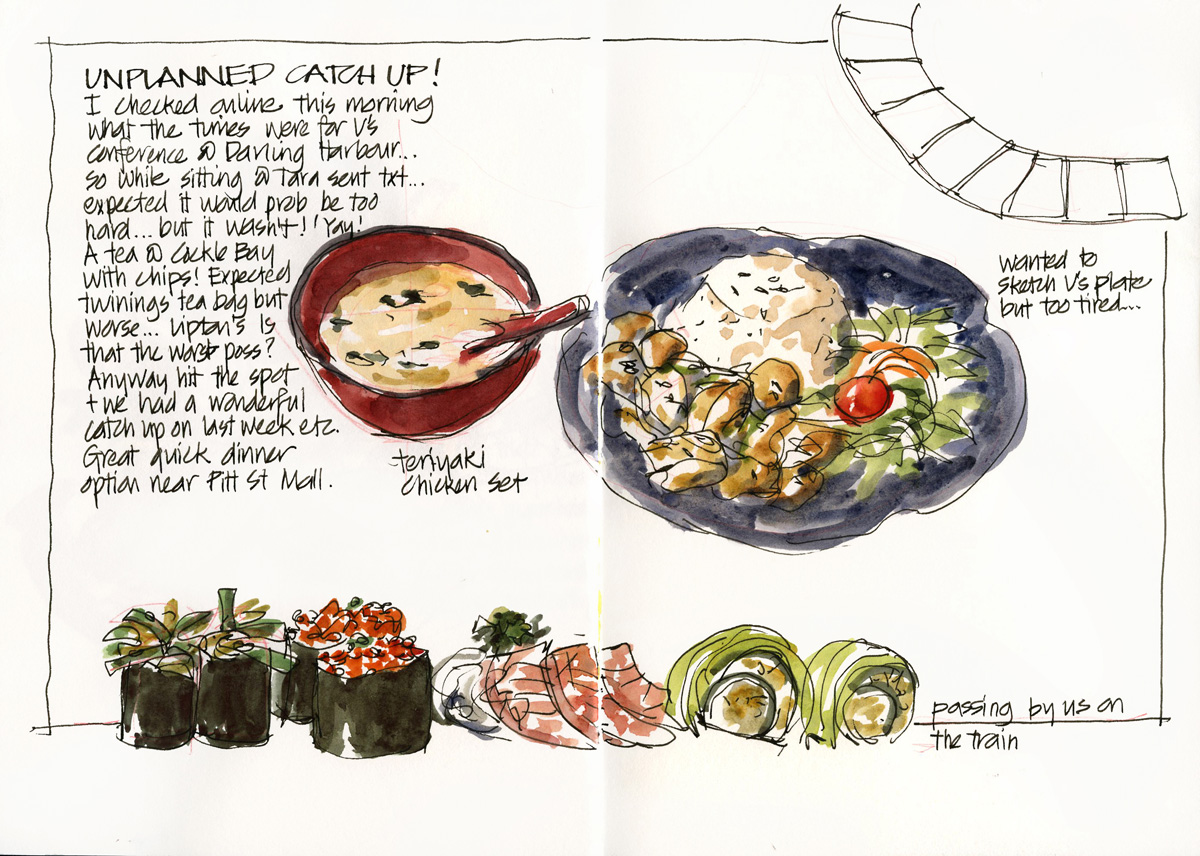 UNPLANNED CATCH UP!
I checked online this morning
what the times were for V's
conference @ Darling Harbour...
so while sitting @ Tara sent txt...
expected it would prob be too
hard... but it wasn't! Yay!
A tea @ Cockle Bay
with chips! Expected
twinings tea bag but
worse... Lipton's Is
that the worst poss?
Anyway hit the spot
+ we had a wonderful
catch up on last week etc.
Great quick dinner
option near Pitt St Mall.
teriyaki
chicken set
wanted to
sketch V's plate
but too tired...
passing by us on
the train